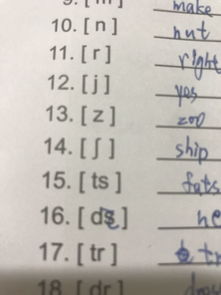 9. [m] make
10. [ n ] nut
11. [ r ] right
12. [ j ] yes
13. [ z ] zoo
14. [ ʃ ] ship
15. [ ts ] fats
16. [ dz ] he
17. [ tr ] tr
18. [ dr ]